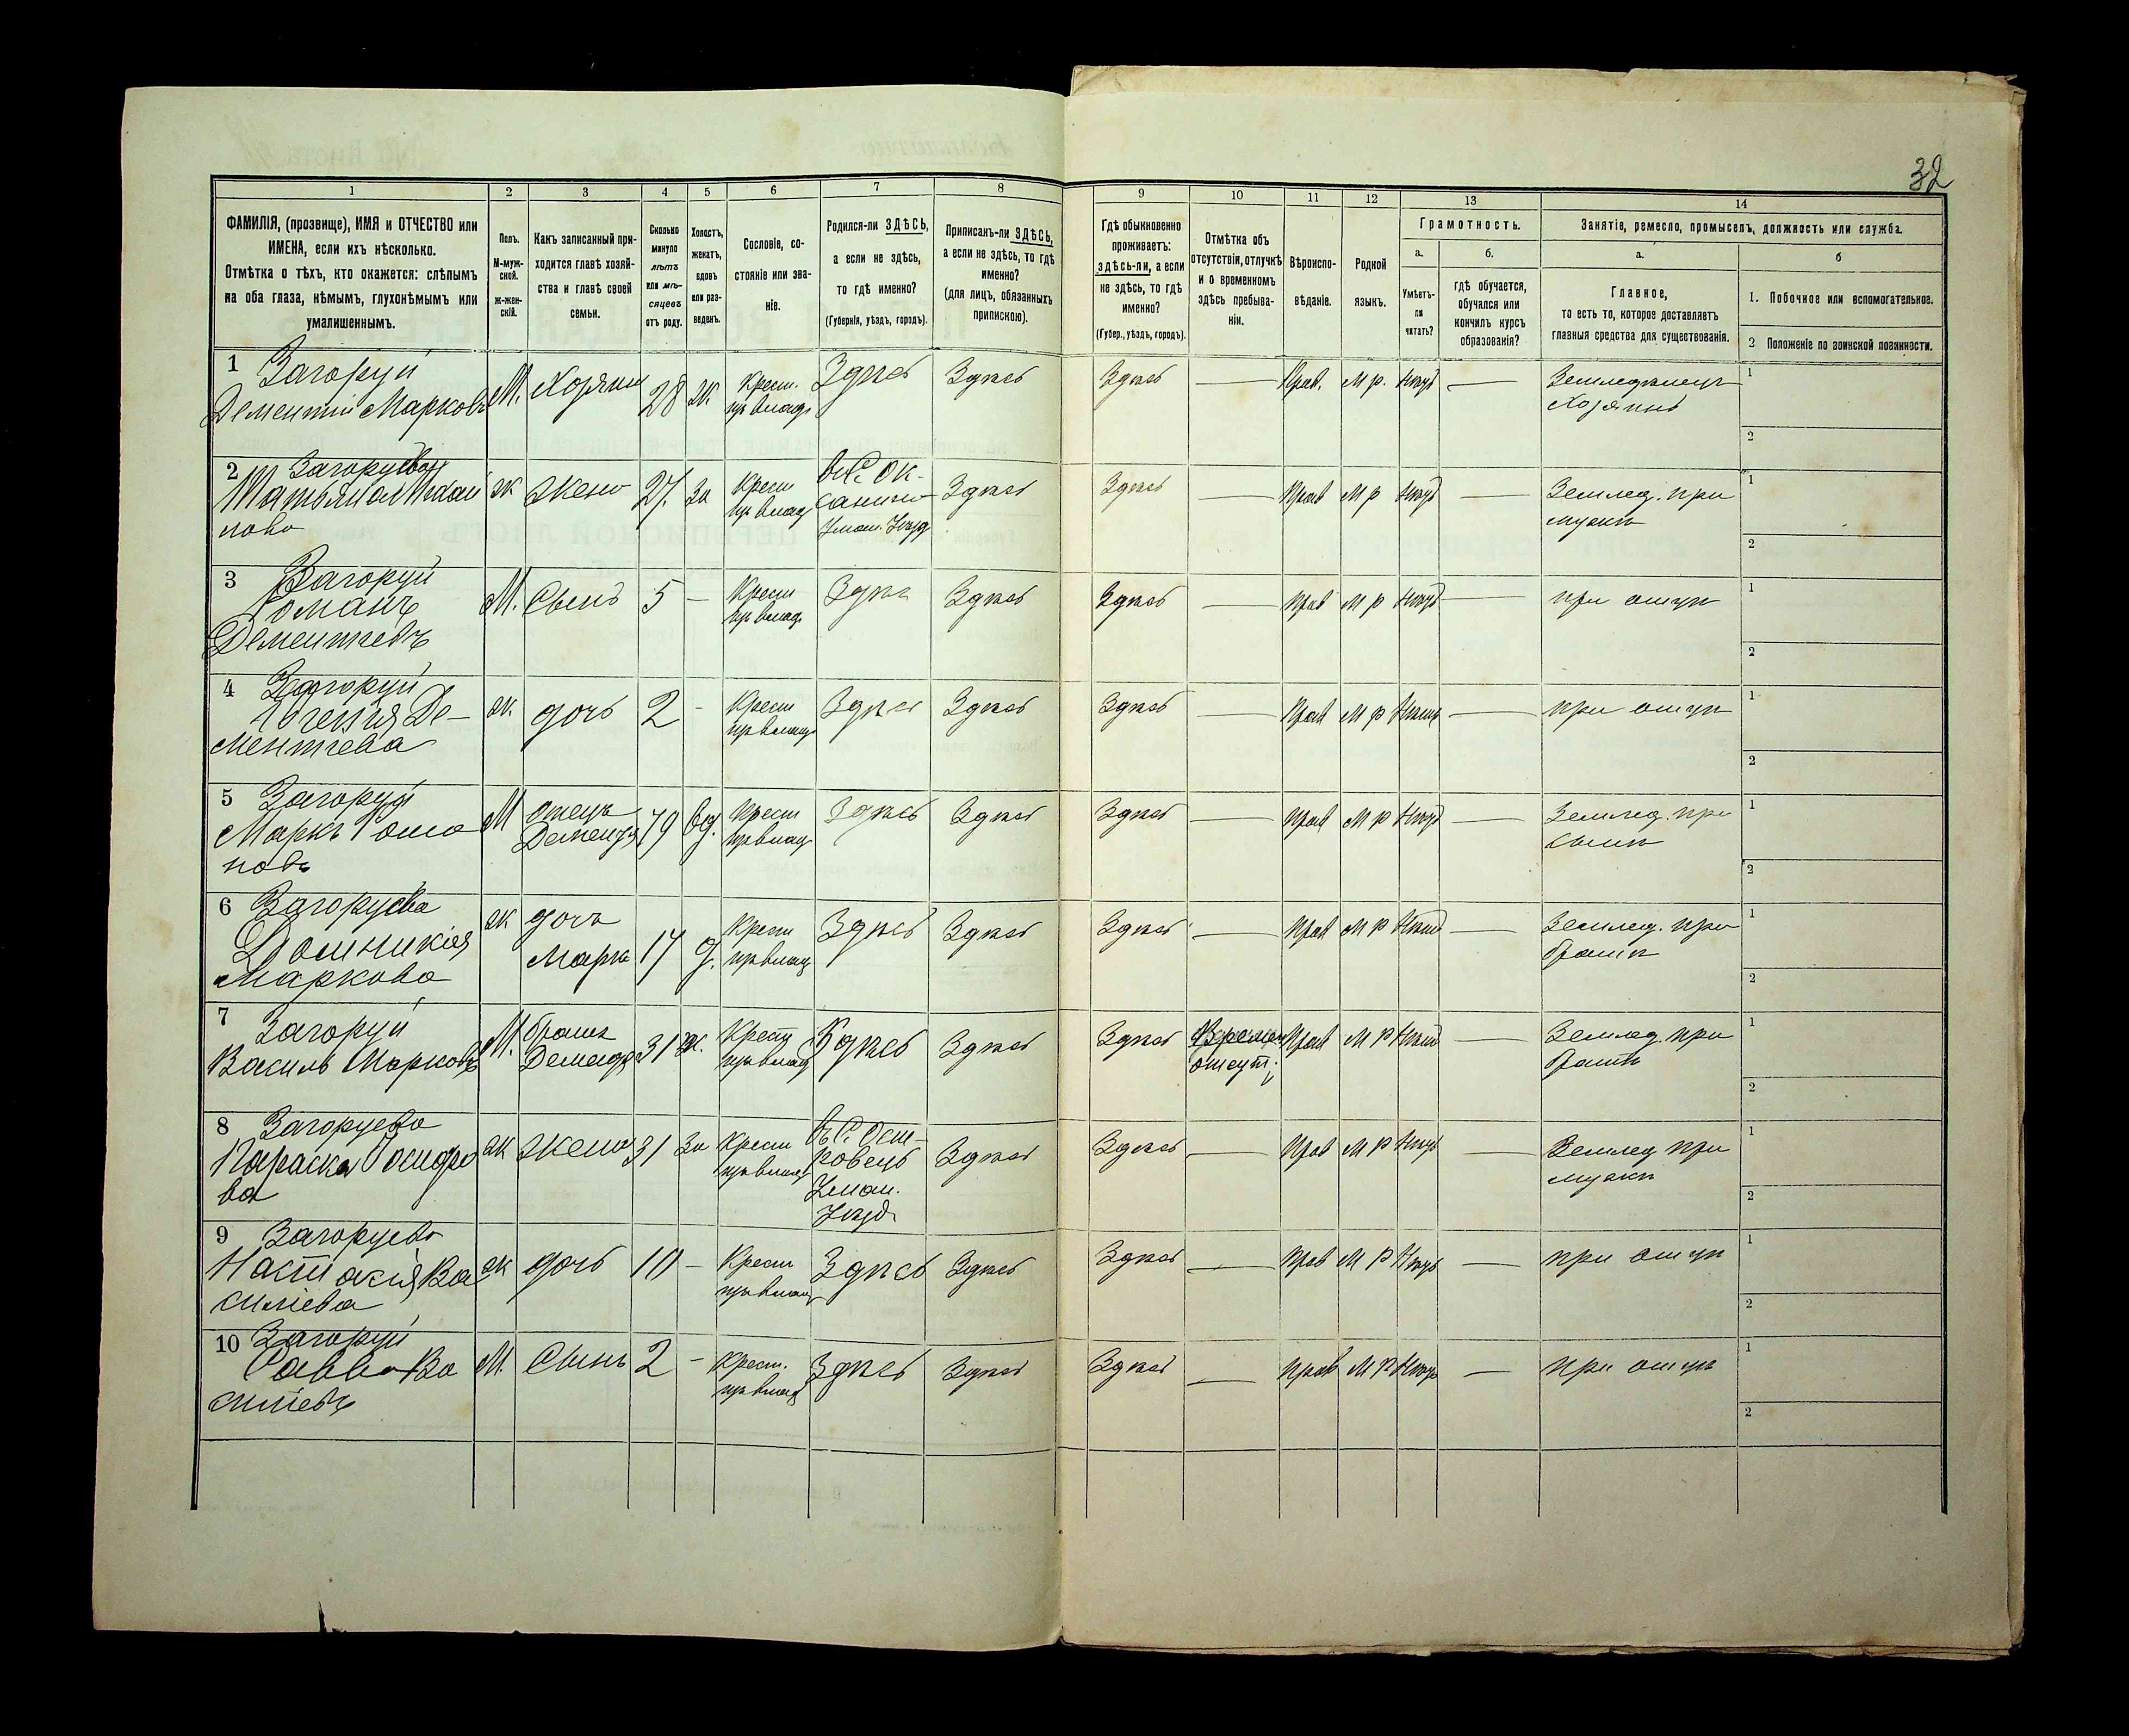 32
1 2 3 4 5 6 7 8 9 10 11 12 13 14
ФАМИЛІЯ, (прозвище), ИМЯ и ОТЧЕСТВО или
ИМЕНА, если ихъ нѣсколько.
Отмѣтка о тѣхъ, кто окажется: слѣпымъ
на оба глаза, нѣмымъ, глухонѣмымъ или
умалишеннымъ.
Полъ.
М-муж-
ской.
ж-жен-
скій.
Какъ записанный при-
ходится главѣ хозяй-
ства и главѣ своей
семьи.
Сколько
минуло
лѣтъ
или мѣ-
сяцевъ
отъ роду.
Холостъ,
женатъ,
вдовъ
или раз-
веденъ.
Сословіе, со-
стояніе или зва-
ніе.
Родился-ли ЗДѢСЬ,
а если не здѣсь,
то гдѣ именно?
(Губернія, уѣздъ, городъ).
Приписанъ-ли ЗДѢСЬ,
а если не здѣсь, то гдѣ
именно?
(для лицъ, обязанныхъ
припискою).
Гдѣ обыкновенно
проживаетъ:
здѣсь-ли, а если
не здѣсь, то гдѣ
именно?
(Губер., уѣздъ, городъ).
Отмѣтка объ
отсутствіи, отлучкѣ
и о временномъ
здѣсь пребыва-
ніи.
Вѣроиспо-
вѣданіе.
Родной
языкъ.
Грамотность.
а.
Умѣетъ-
ли
читать?
б.
гдѣ обучается,
обучался или
кончилъ курсъ
образованія?
Занятіе, ремесло, промыселъ, должность или служба.
а.
Главное,
то есть то, которое доставляетъ
главныя средства для существованія.
б
1. Побочное или вспомогательное.
2 Положеніе по воинской повинности.
1 Загоруй
Дементій Марковъ
М. Хозяинъ 28 ж. Крест.
Здѣсь Здѣсь Здѣсь — Прав. М р. Нѣтъ — Земледѣлецъ
Хозяинъ
1
2
2 Загоруева
Татьяна
ж жена 27 За Крест
Уман. Уѣзд
Здѣсь Здѣсь — Прав М р Нѣтъ — Землед. при
мужѣ
1
2
3 Загоруй
Романъ
Дементіевъ
М. Сынъ 5 — Крест
Здѣсь Здѣсь Здѣсь — Прав М р Нѣтъ — при отцѣ
1
2
4 Загоруй
Де-
ментіева
ж. дочь 2 - Крест
Здѣсь Здѣсь Здѣсь — Прав М р Нѣтъ — при отцѣ
1
2
5 Загоруй
Маркъ Рома
новъ
М отецъ 79 вд. Крест
Здѣсь Здѣсь Здѣсь — Прав М р Нѣтъ — Землед. при
сынѣ
1
2
6 Загоруева
Домникія
Маркова
ж дочь
Марка 17 д. Крест
Здѣсь Здѣсь Здѣсь — Прав М р Нѣтъ — Землед. при
братѣ
1
2
7 Загоруй
Василь Марковъ
М. братъ 31 ж. Крест
Здѣсь Здѣсь Здѣсь Времен
отсут. Прав М р Нѣтъ — Землед. при
братѣ
1
2
8 Загоруева
Параска
ва
ж жена 31 За Крест
Уман.
Уѣзд.
Здѣсь Здѣсь — Прав М р Нѣтъ — Землед при
мужѣ
1
2
9 Загоруева
Настасія Ва
силіева
ж дочь 10 - Крест
Здѣсь Здѣсь Здѣсь — Прав М р Нѣтъ — при отцѣ
1
2
10 Загоруй
Савва Ва
силіевъ
М Сынъ 2 - Крест.
Здѣсь Здѣсь Здѣсь — Прав М р Нѣтъ — при отцѣ
1
2